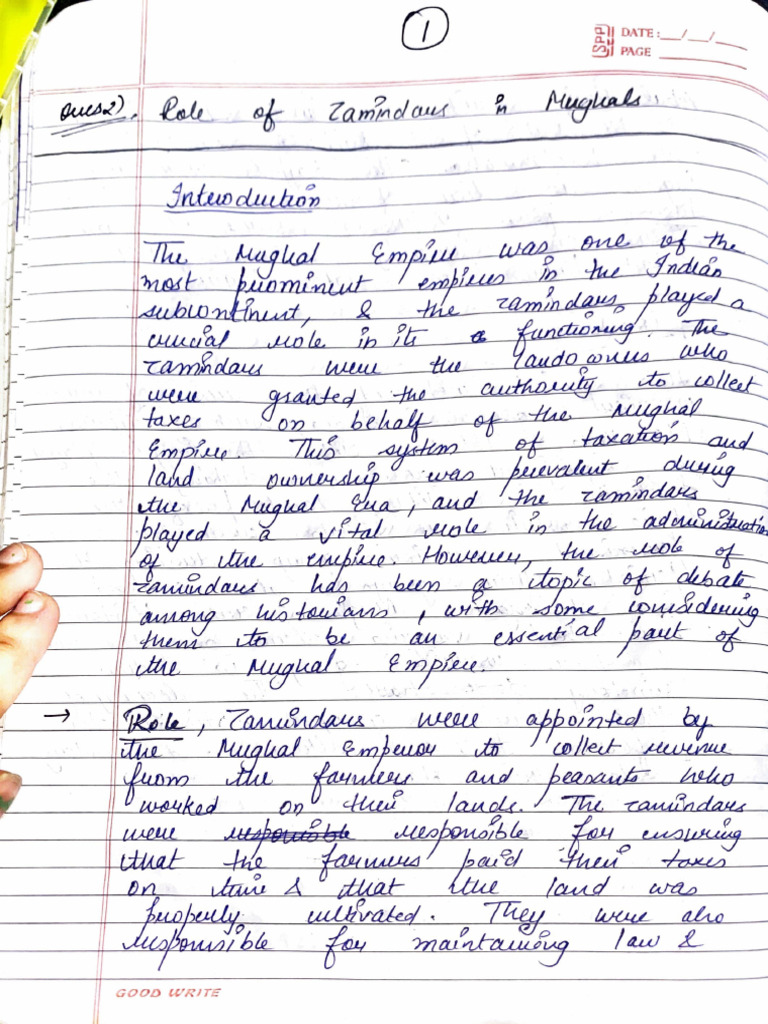 1
SPP DATE: __/__/__
PAGE ______
Ques2). Role of Zamindars in Mughals.
Introduction
The Mughal Empire was one of the
most prominent empires in the Indian
subcontinent, & the zamindars played a
crucial role in its functioning. The
zamindars were the landowners who
were granted the authority to collect
taxes on behalf of the Mughal
Empire. This system of taxation and
land ownership was prevalent during
the Mughal Era, and the zamindars
played a vital role in the administration
of the empire. However, the role of
zamindars has been a topic of debate
among historians, with some considering
them to be an essential part of
the Mughal Empire.
→ Role, Zamindars were appointed by
the Mughal Emperor to collect revenue
from the farmers and peasants who
worked on their lands. The zamindars
were responsible responsible for ensuring
that the farmers paid their taxes
on time & that the land was
properly cultivated. They were also
responsible for maintaining law &
GOOD WRITE